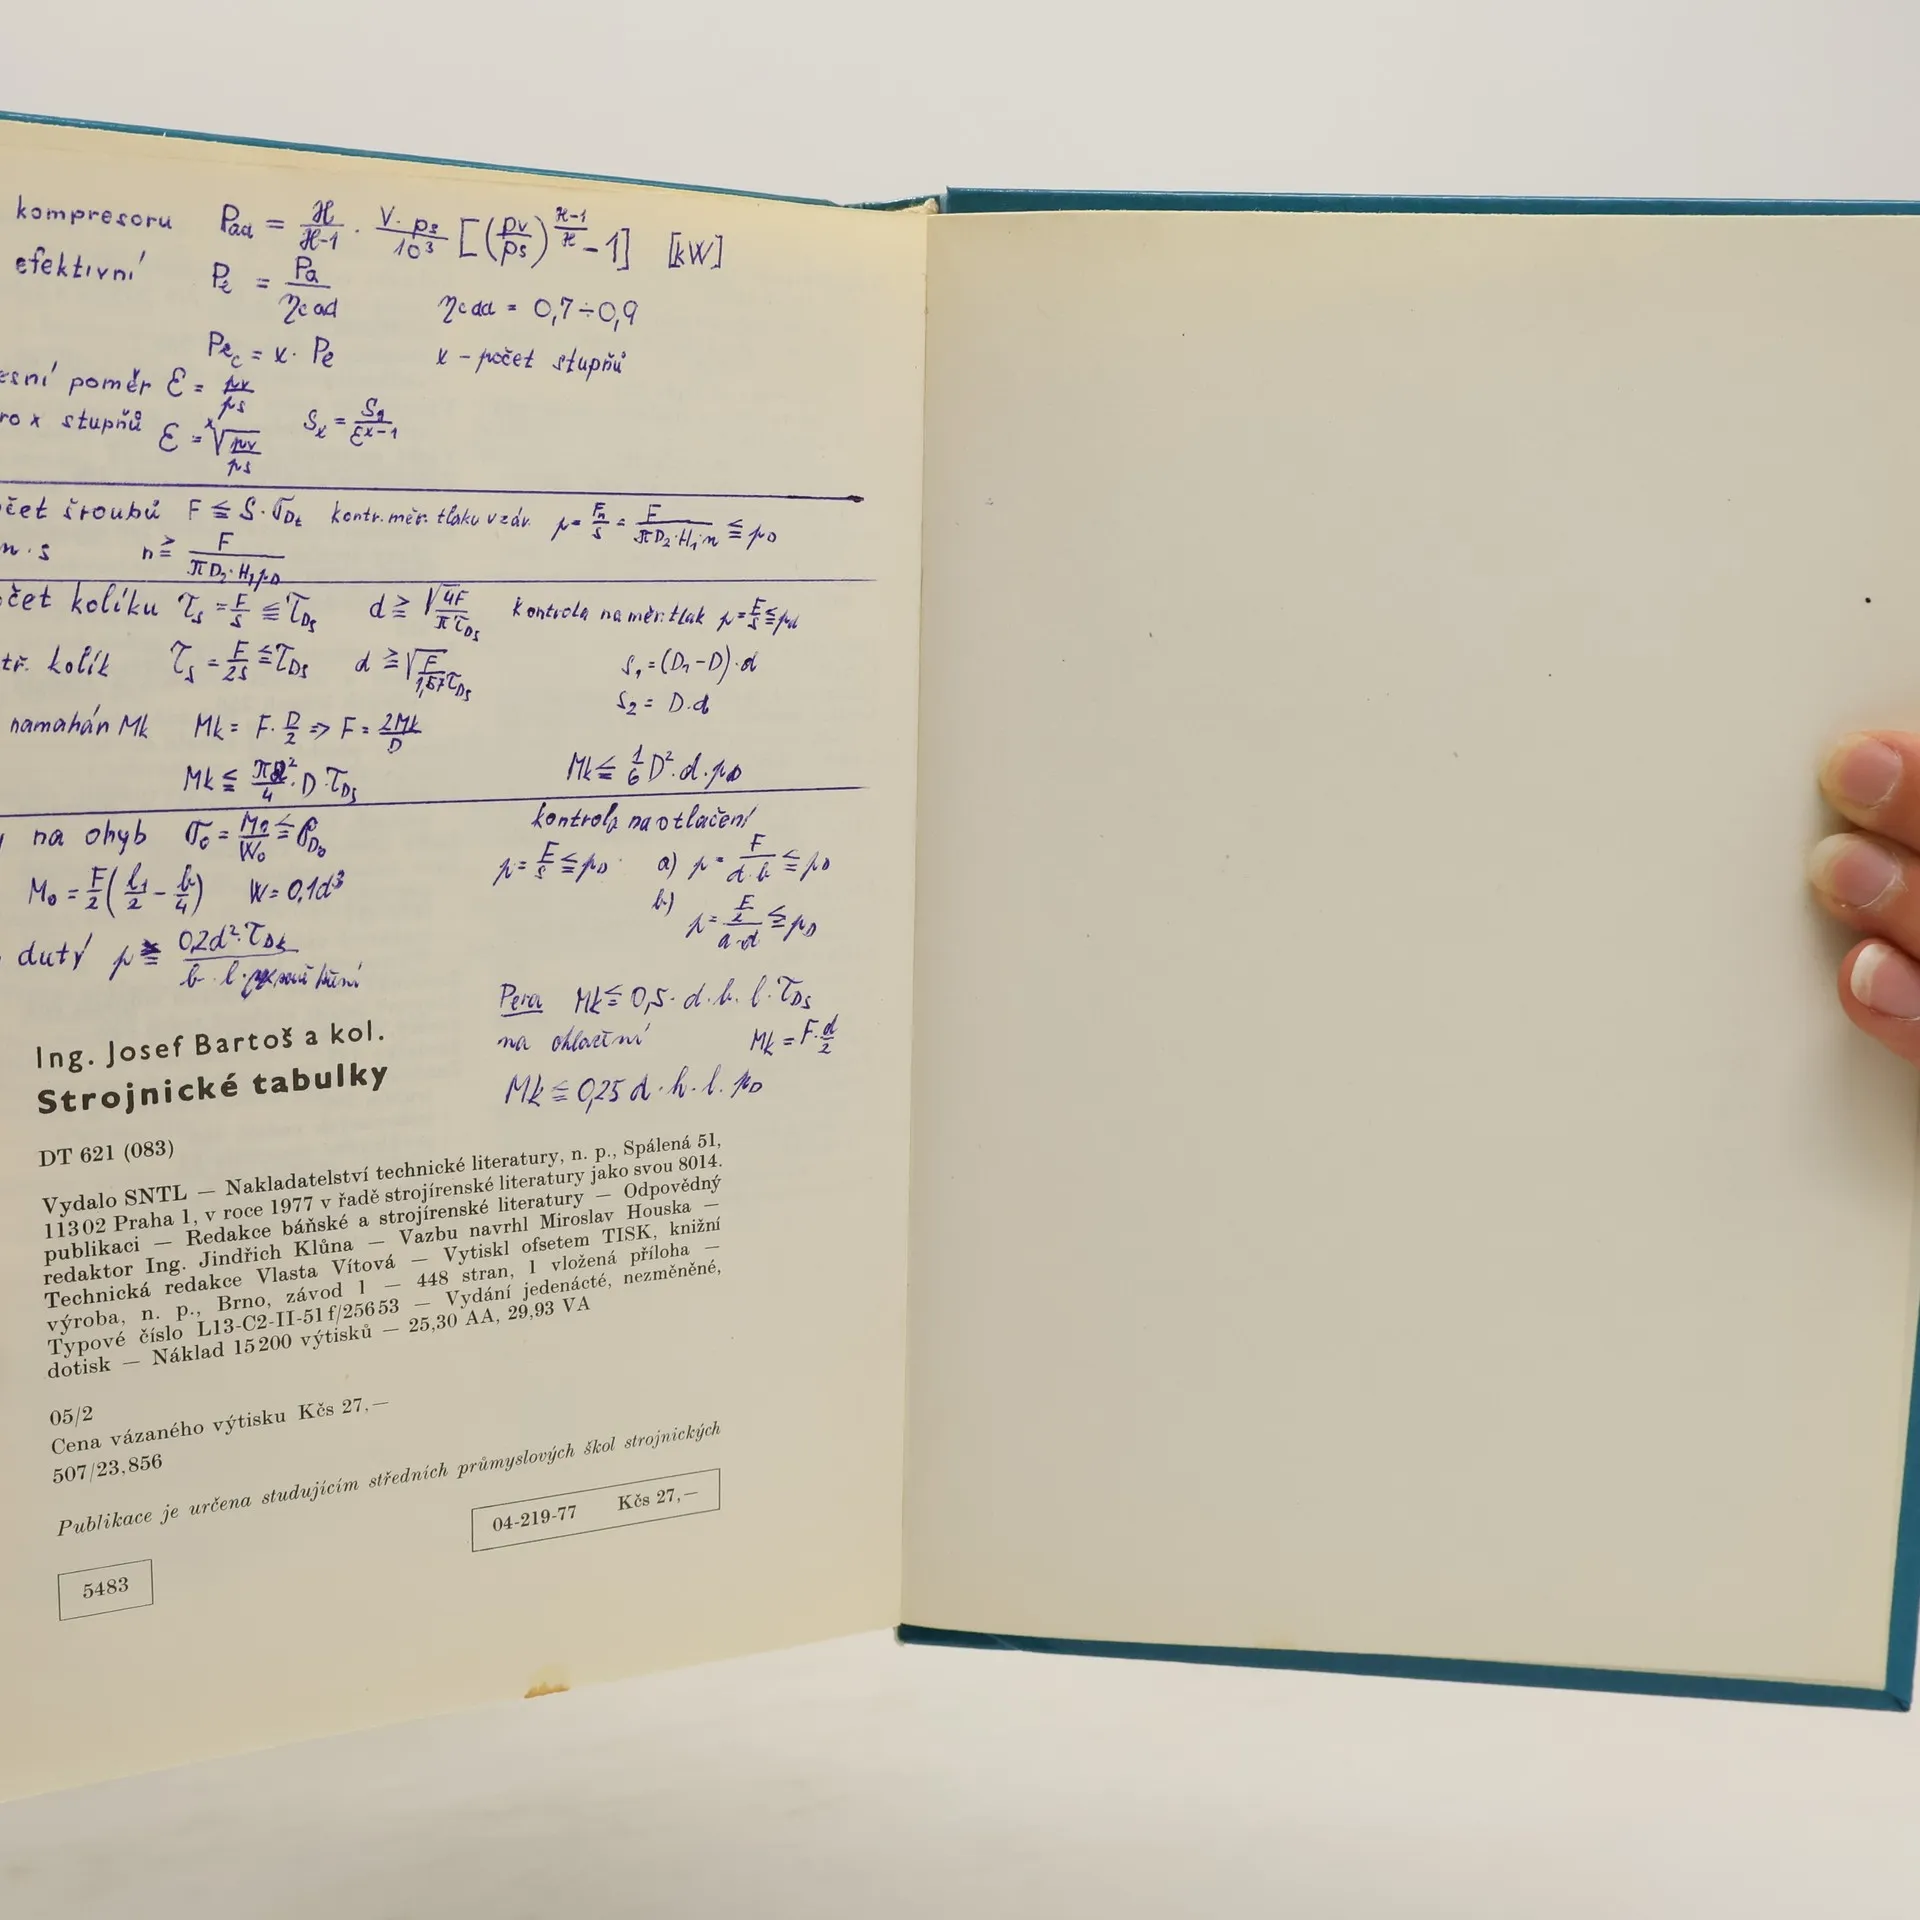 kompresoru Pad = ϰ/ϰ-1 · V·ps/10³ [(pv/ps)^ϰ-1/ϰ - 1] [kW]
efektivní Pe = Pa/ηc ad ηc ad = 0,7÷0,9
Pec = x · Pe x - počet stupňů
esní poměr ε = pv/ps
ro x stupňů ε = ˣ√pv/ps Sx = S1/εx-1
čet šroubů F ≦ S·σDt kontr. měr. tlaku v záv. p = Fn/s = F/πD2·H1·n ≦ pD
n·s n ≧ F/πD2·H1pD
čet kolíku τs = F/s ≦ τDs d ≧ √4F/πτDs kontrola na měr. tlak p = F/s ≦ pd
tř. kolík τs = F/2s ≦ τDs d ≧ √F/1,57τDs s1 = (D1-D)·d
s2 = D·d
namahán Mk Mk = F·D/2 ⇒ F = 2Mk/D
Mk ≦ πd²/4·D·τDs Mk ≦ 1/6 D²·d·pD
na ohyb σo = Mo/Wo ≦ σDo kontrola na otlačení
p = F/s ≦ pD a) p = F/d·b ≦ pD
Mo = F/2(l1/2 - b/4) W = 0,1d³
b) p = F/2/a·d ≦ pD
dutý p ≧ 0,2d²·τDk
b·l·
Pera Mk ≦ 0,5·d·b·l·τDs
na otlačení Mk = F·d/2
Mk ≦ 0,25 d·h·l·pD
Ing. Josef Bartoš a kol.
Strojnické tabulky
DT 621 (083)
Vydalo SNTL — Nakladatelství technické literatury, n. p., Spálená 51,
113 02 Praha 1, v roce 1977 v řadě strojírenské literatury jako svou 8014.
publikaci — Redakce báňské a strojírenské literatury — Odpovědný
redaktor Ing. Jindřich Klůna — Vazbu navrhl Miroslav Houska —
Technická redakce Vlasta Vítová — Vytiskl ofsetem TISK, knižní
výroba, n. p., Brno, závod 1 — 448 stran, 1 vložená příloha —
Typové číslo L13-C2-II-51 f/256 53 — Vydání jedenácté, nezměněné,
dotisk — Náklad 15 200 výtisků — 25,30 AA, 29,93 VA
05/2
Cena vázaného výtisku Kčs 27,—
507/23,856
Publikace je určena studujícím středních průmyslových škol strojnických
04-219-77 Kčs 27,—
5483